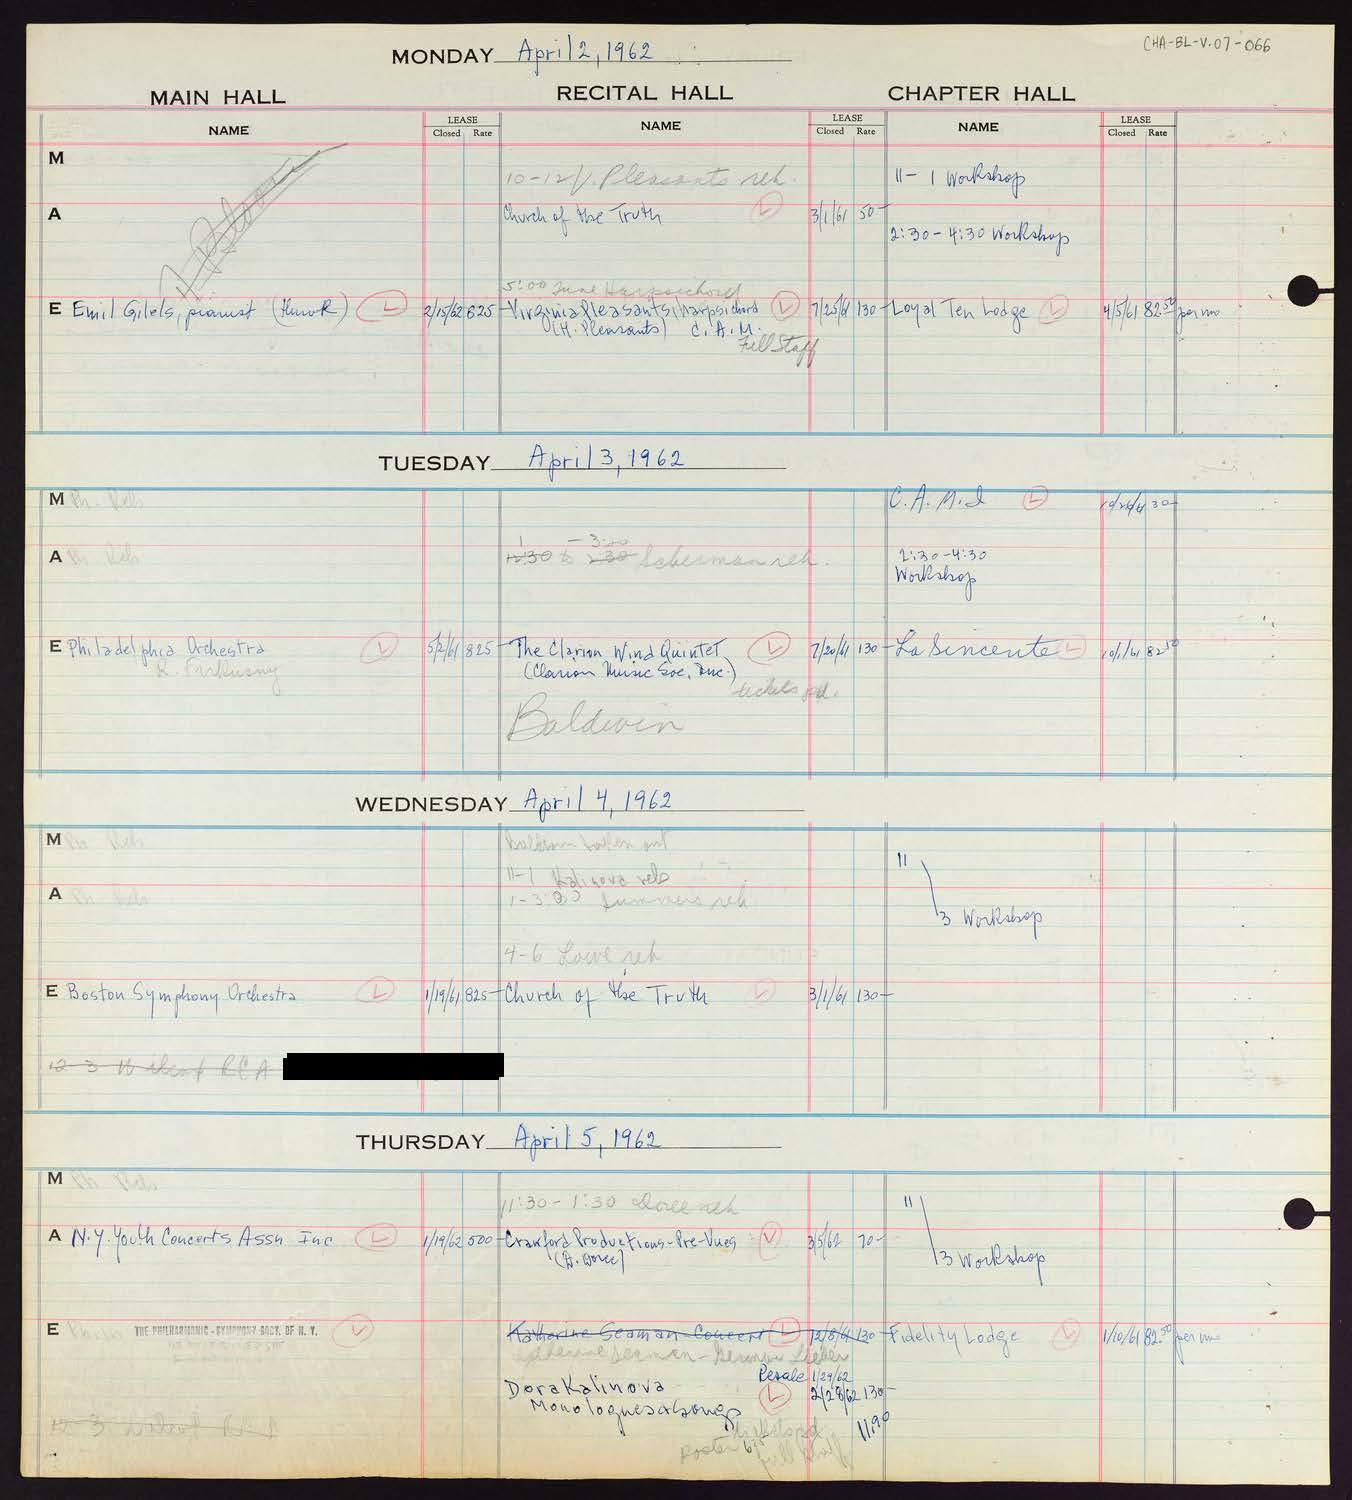 CHA-BL-V.07-066
MONDAY April 2, 1962
MAIN HALL RECITAL HALL CHAPTER HALL
NAME LEASE Closed Rate NAME LEASE Closed Rate NAME LEASE Closed Rate
M
10-12 V. Pleasants reh. 11-1 Workshop
A Church of the Truth L 3/1/61 50-
2:30-4:30 Workshop
5:00 tune Harpsichord
E Emil Gilels, pianist (Hurok) L 2/15/62 825- Virginia Pleasants, harpsichord L 7/25/61 130- Loyal Ten Lodge L 4/5/61 82.50 per mo
(H. Pleasants) C.A.M.
Full Staff
TUESDAY April 3, 1962
M Ph. Reh C.A.M.I L 10/24/61 30-
1 - 3:00
A Ph Reh 12:30 to 2:30 reh. 2:30-4:30
Workshop
E Philadelphia Orchestra L 5/2/61 825- The Clarion Wind Quintet L 7/20/61 130- La Sincerite L 10/1/61 82.50
R. Firkusny (Clarion Music Soc, Inc.)
tickets pd.
Baldwin
WEDNESDAY April 4, 1962
M Ph Reh Baldwin taken out
11-1 Kalinova reh 11
A Ph Reh 1-3:00 Summers reh
3 Workshop
4-6 Lowe reh
E Boston Symphony Orchestra L 1/19/61 825- Church of the Truth L 3/1/61 130-
12-3 Wilcox RCA
THURSDAY April 5, 1962
M Ph Reh
11:30-1:30 Doree reh 11
A N.Y. Youth Concerts Assn Inc L 1/19/62 500- Crawford Productions-Pre-Vues L 3/5/62 70-
(D. Doree) 3 Workshop
E THE PHILHARMONIC-SYMPHONY SOCY. OF N. Y. L Katherine Seaman Concert L 12/8/61 130- Fidelity Lodge L 1/10/61 82.50 per mo
Katherine Seaman-
Resale 1/29/62
Dora Kalinova L 2/28/62 130-
Monologues & Songs 11.90
tickets pd
12-3
Poster 6.75 full staff